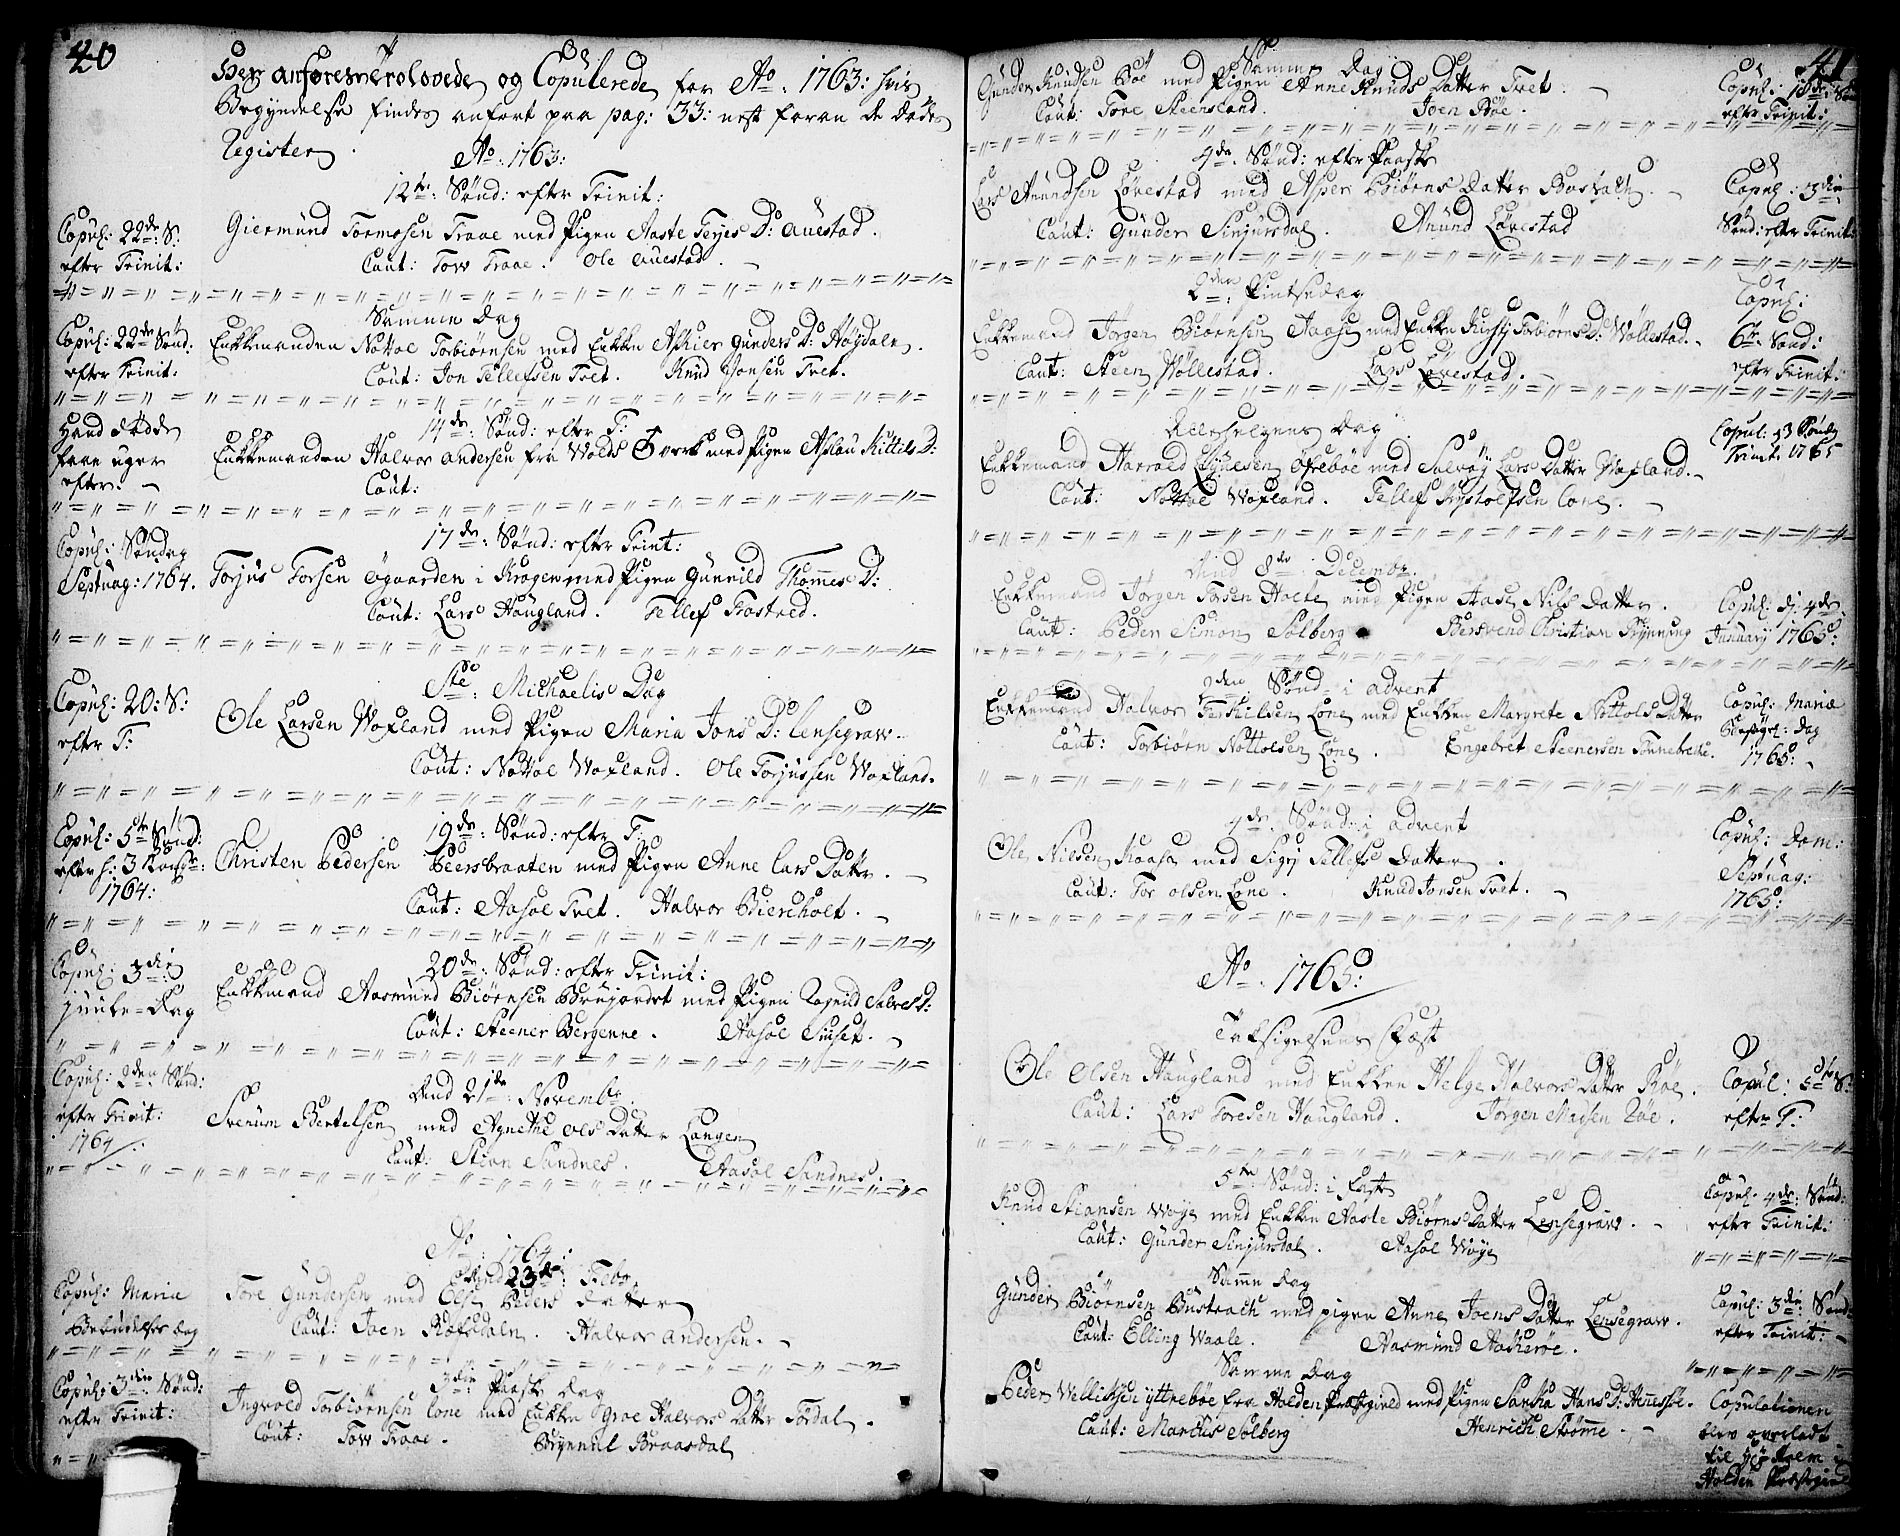 40
Her anføres Trolovede og Copulerede for Ao. 1763: hvis
Begyndelse findes anfört paa pag: 33: nest foran de Dødes
Register.
Ao. 1763:
12te: Sønd: efter Trinit:
Copul: 22de S:
efter Trinit:
Giermund Tormosen Traae med Pigen Aaste Terjes D: Auestad.
Caut: Tow Traae. Ole Auestad.
Samme Dag
Copul: 22de Sønd:
efter Trinit:
Enkkemanden Nottoe Torbiørnsen med Enkke Askier Gunders D: Høgdalen.
Caut: Jon Tellefsen Tvet. Knud Jonsen Tvet.
14de: Sønd: efter T:
Hand døde
faae uger
efter.
Enkkemanden Halvor Andersen fra Wolds Værk med Pigen Aslau Kittils D:
Caut:
17de: Sønd: efter Trint:
Copul: Søndag
Septuag: 1764.
Torjus Torsen Øgaarden i Krogen med Pigen Gunnild Thommes D:
Caut: Lars Haugland. Tellef Rostved.
Ste: Michaelis Dag
Copul: 20: S:
efter T:
Ole Larsen Wofland med Pigen Maria Jons D: Lensegrav.
Caut: Nottoe Wofland. Ole Torjussen Wofland.
19de: Sønd: efter T:
Copul: 5te Sønd:
efter h: 3 Konger:
1764:
Christen Pedersen Peersbraaten med Pigen Anne Lars Datter.
Caut: Aasoe Tvet. Halvor Biereholt.
20de: Sønd: efter Trinit:
Copul: 3die
juule-Dag
Enkkemand Aasmund Biørnsen Brujordet med Pigen Ragnild Salves D:
Caut: Steener Bergenne. Aasoe Siuset.
Dend 21de: Novembr.
Copul: 2den Sønd:
efter Trinit:
1764:
Svenum Bertelsen med Agnethe Ols Datter Langen
Caut: Stian Sandnes. Aasoe Sandnes.
Ao: 1764:
Dend 23de: Febr.
Copul: Mariæ
Bebudelses Dag
Tore Gundersen med Else Peders Datter
Caut: Joen Ræfsdalen. Halvor Andersen.
3die: Paaske Dag
Copul: 3die: Sønd:
efter Trinit:
Ingvold Torbiørnsen Lone med Enkke Groe Halvors Datter Tordal.
Caut: Tow Traae. Brynnul Braasdal
41
Samme Dag
Gunder Knudsen Bøe med Pigen Anne Knuds Datter Tvet.
Caut: Tore Steensland. Joen Bøe.
Copul: Sønd
efter Trinit:
4de. Sønd: efter Paaske
Lars Anundsen Lövestad med Asper Biørns Datter
Caut: Gunder Sinjursdal. Anund Lövestad
Copul: 13die
Sønd: efter Trinit:
2den: Pintsedag
Enkkemand Jörgen Biørnsen Aaase med Enkke Kirstj Torbiørns D: Wöllestad.
Caut: Steen Wöllestad. Lars Lövestad.
Copul:
6te Sønd:
efter Trinit:
Allehelgens Dag
Enkkemand Harrald Ejvelsen Øfrebøe med Solvøy Lars Datter Wofland.
Caut: Nottoe Wofland. Tellef Krystofsen Lone.
Copul: 23 Søndag
Trinit. 1765
Dend 8de: Decembr.
Enkkemand Jörgen Torsen Holte med Pigen Aase Nils Datter.
Caut: Peder Simon Solberg. Bersvend Christian Brynning
Copul: d: 4de
January 1765:
2den Sønd: i Advent
Enkkemand Halvor Terkilsen Lone med Enkken Margrete Nottols Datter
Caut: Torbiørn Nottolsen Lone. Engebret Steenersen Tonnebrekke.
Copul: Mariæ
Besøgel: Dag
1765:
4de. Sønd: i Advent
Ole Nielsen Kaasa med Sigrj Tellefs Datter.
Caut: Tor Olsen Lone. Knud Jonsen Tvet.
Copul: Dom:
Septuag:
1765:
Ao. 1765:
Taksigelsens Fæst
Ole Olsen Haugland med Enkken Helge Halvors Datter Bøe.
Caut: Lars Toresen Haugland. Jörgen Madsen Roe.
Copul: 5te S:
efter T:
5te Sønd: i Faste
Knud Stiansen Woje med Enkke Aaste Biørns Datter Lensegrav.
Caut: Gunder Sinjursdal. Aasoe Woje
Copul: 4de: Sønd:
efter Trinit:
Samme Dag
Gunder Biørnsen Bustrach med pigen Anne Joens Datter Lensegrav.
Caut: Elling Waale. Aasmund Askeröe.
Copul: 3die: Sønd:
efter Trinit:
Samme Dag
Peder Wellichsen Yttrebøe fra Holden Præstegield med Pigen Sanka Hans D: Henesøe.
Caut: Marcus Solberg Henrich Strømme.
Copulationen
blev overladt
til Hr Holm i
Holden Præstegield